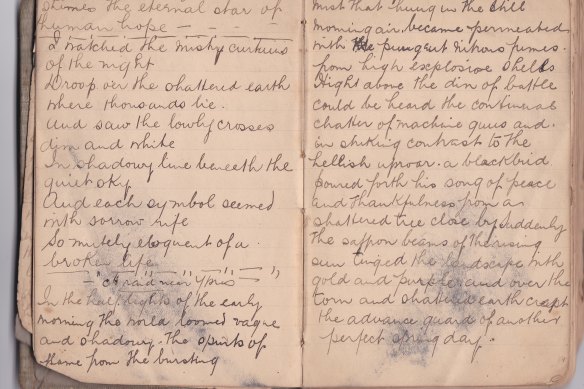 shines the eternal star of
human hope —
I watched the misty curtains
of the night
Droop over the shattered earth
where thousands lie.
And saw the lowly crosses
dim and white
In shadowy line beneath the
quiet sky
And each symbol seemed
with sorrow rife
So mutely eloquent of a
broken life
"A raid near Ypres"
In the half lights of the early
morning the world loomed vague
and shadowy. The spirits of
flame from the bursting
mist that hung in the still
morning air became permeated
with the pungent nitrous fumes.
from high explosive shells
Hight above the din of battle
could be heard the continual
chatter of machine guns and.
in striking contrast to the
hellish uproar. a blackbid
poured forth his song of peace
and thankfulness from a
shattered tree close by. Suddenly
the saffron beams of the rising
sun tinged the landscape with
gold and purple and over the
torn and shattered earth crept
the advance guard of another
perfect spring day.